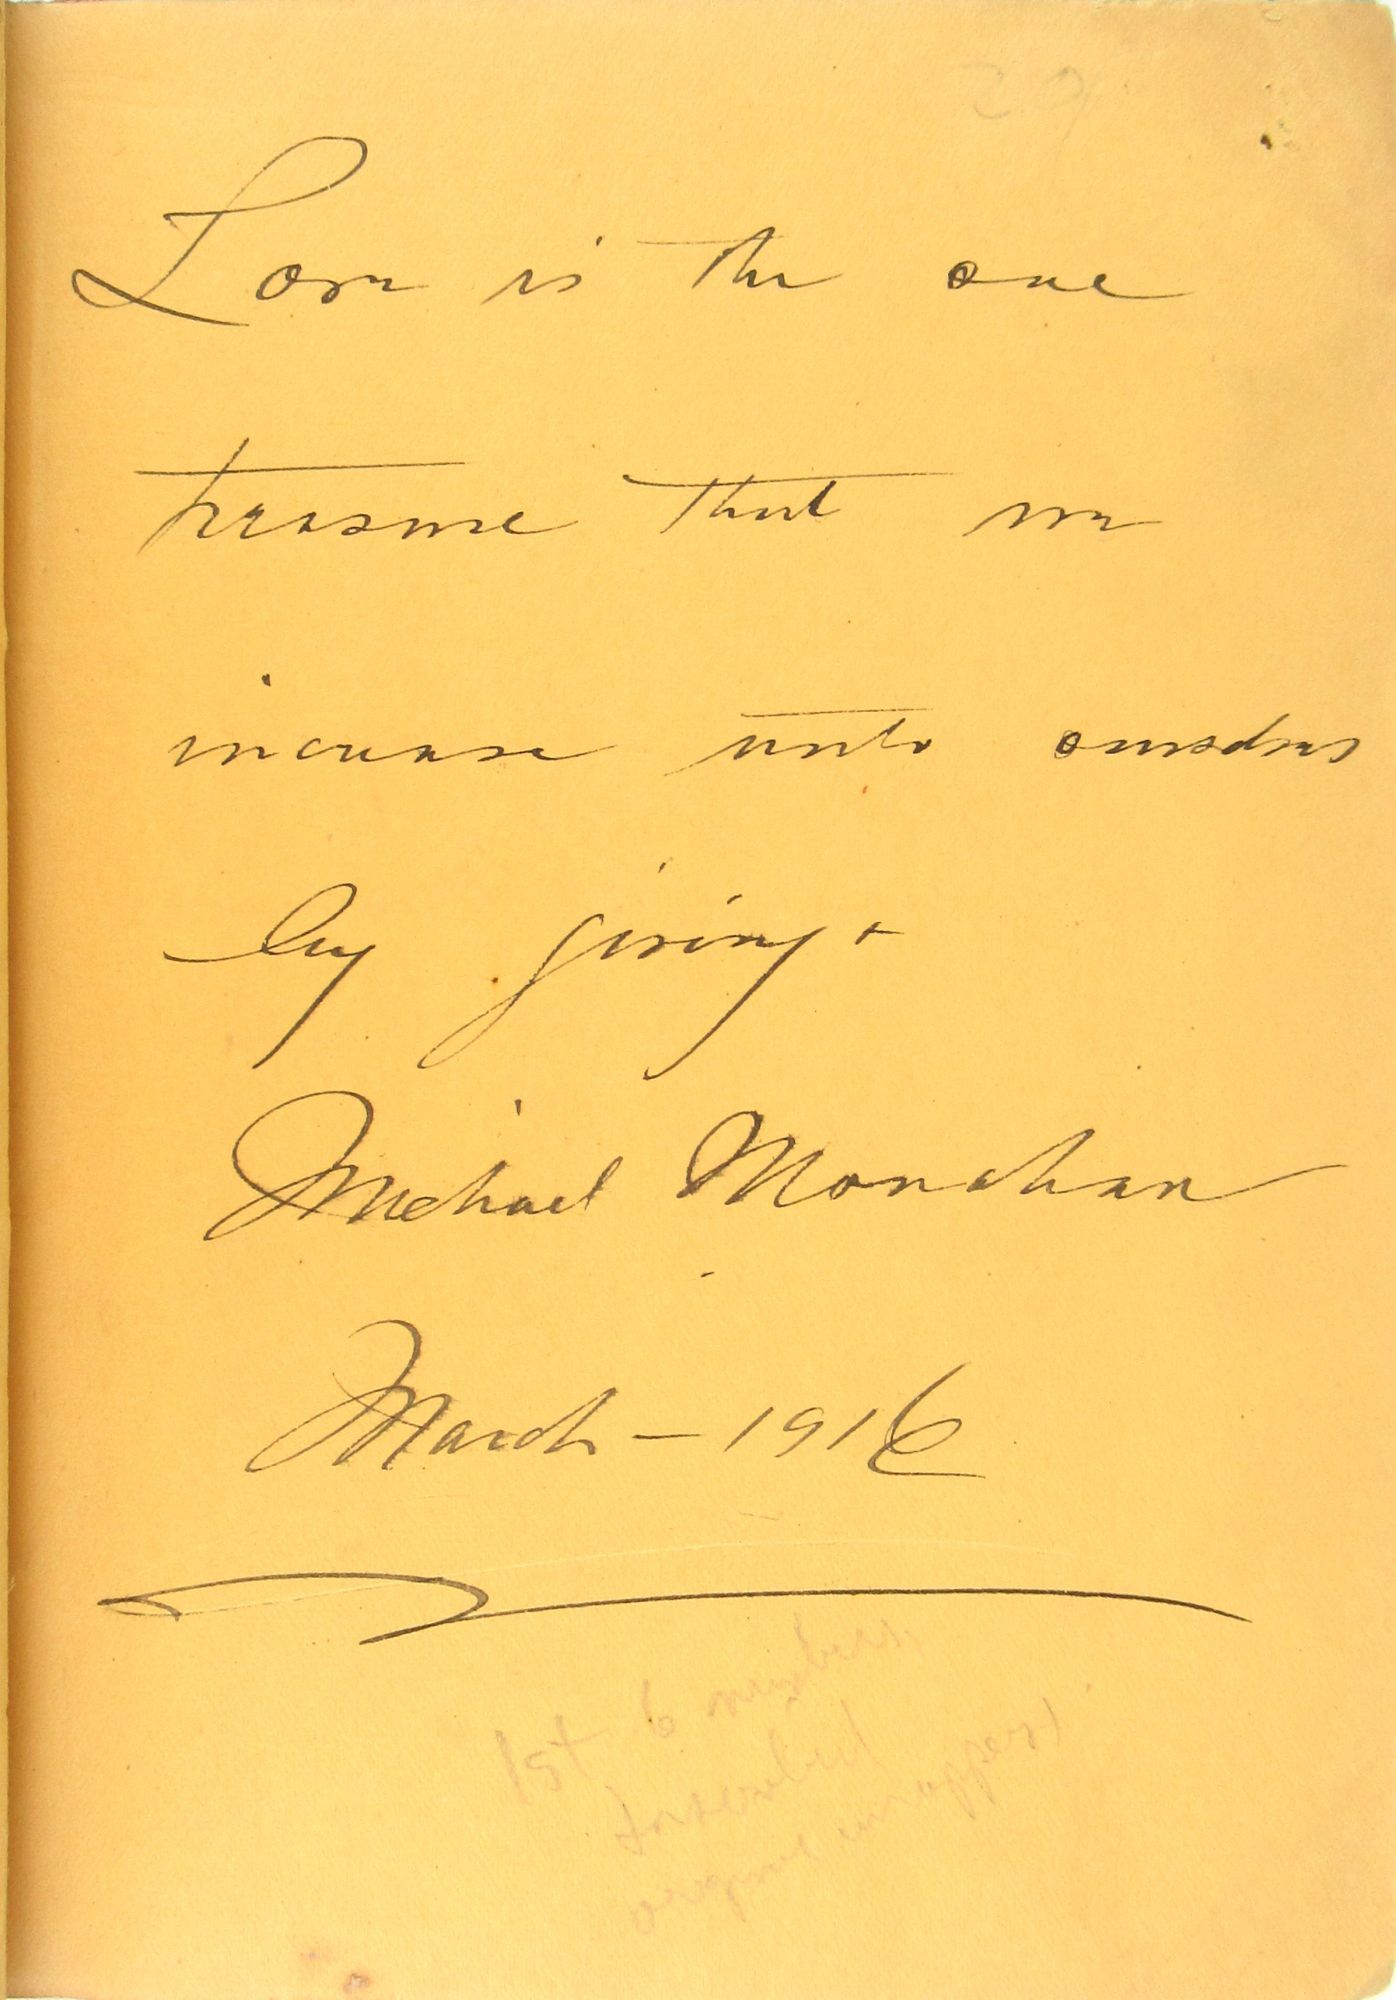 Love is the one
treasure that we
increase unto ourselves
by giving.
Michael Monahan
March – 1916
1st 6 numbers
Inscribed
original wrappers